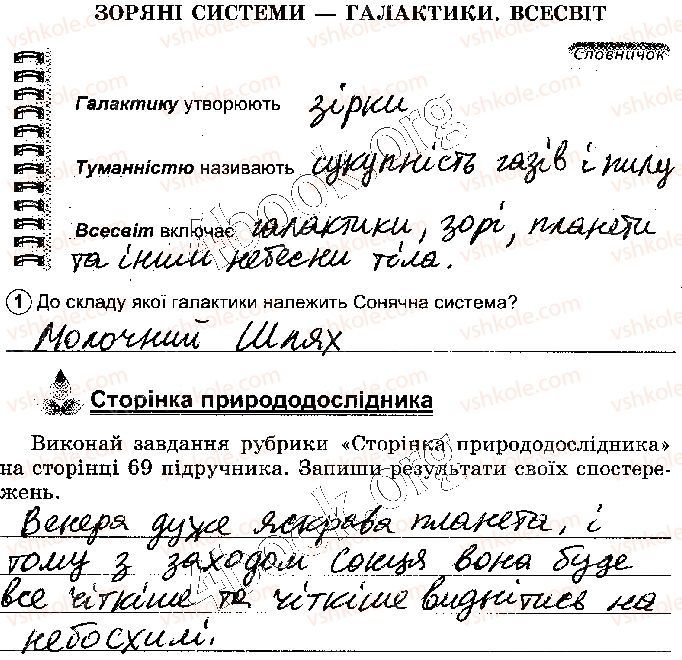 ЗОРЯНІ СИСТЕМИ — ГАЛАКТИКИ. ВСЕСВІТ
Словничок
Галактику утворюють зірки
Туманністю називають сукупність газів і пилу
Всесвіт включає галактики, зорі, планети
та інши небесни тіла.
1 До складу якої галактики належить Сонячна система?
Молочний Шлях
Сторінка природодослідника
Виконай завдання рубрики «Сторінка природодослідника»
на сторінці 69 підручника. Запиши результати своїх спостере-
жень.
Венера дуже яскрава планета, і
тому з заходом сонця вона буде
все чіткіше та чіткіше виднітись на
небосхилі.
4book.org
4book.org
4book.org
vshkole.com